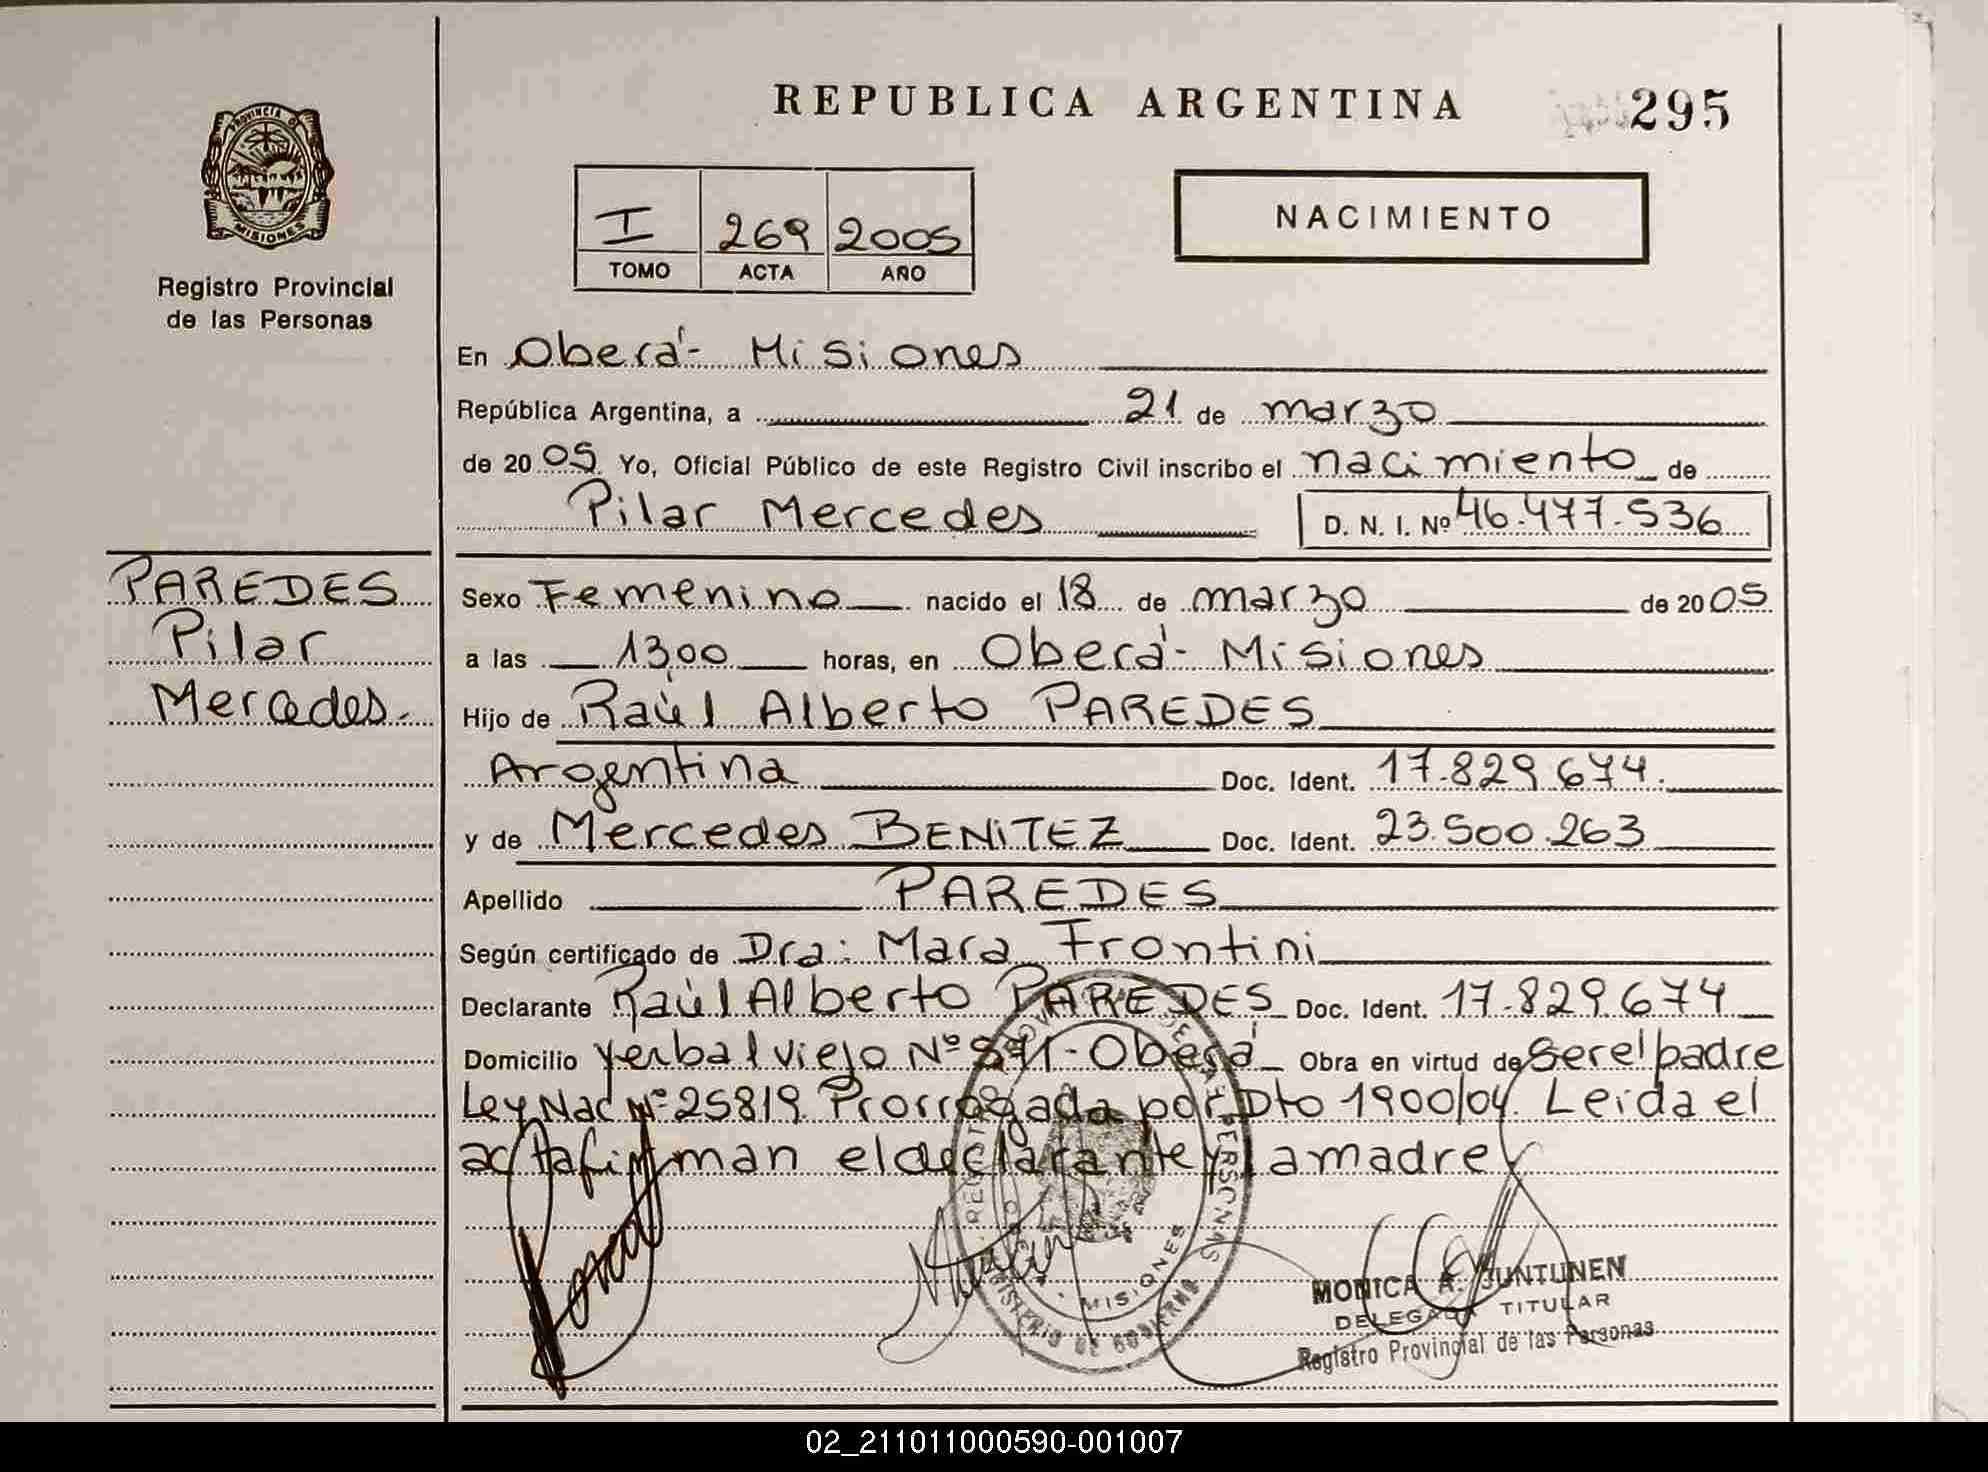 REPUBLICA ARGENTINA
295
PROVINCIA DE
MISIONES
Registro Provincial
de las Personas
I 269 2005
TOMO ACTA AÑO
NACIMIENTO
En Oberá - Misiones
República Argentina, a 21 de marzo
de 2005 Yo, Oficial Público de este Registro Civil inscribo el nacimiento de
Pilar Mercedes D. N. I. Nº 46.477.536
PAREDES
Pilar
Mercedes.
Sexo Femenino nacido el 18 de marzo de 2005
a las 13,00 horas, en Oberá - Misiones
Hijo de Raúl Alberto PAREDES
Argentina Doc. Ident. 17.829.674.
y de Mercedes BENITEZ Doc. Ident. 23.500.263
Apellido PAREDES
Según certificado de Dra: Mara Frontini
Declarante Raúl Alberto PAREDES Doc. Ident. 17.829.674
Domicilio Yerbal viejo Nº 871 - Oberá Obra en virtud de Ser el padre
Ley Nac Nº 25819. Prorrogada por Dto 1900/04. Leida el
acta firman el declarante y la madre
REGISTRO DE LAS PERSONAS
MISIONES
MINISTERIO DE GOBIERNO
MONICA A. JUNTUNEN
DELEGADA TITULAR
Registro Provincial de las Personas
02_211011000590-001007